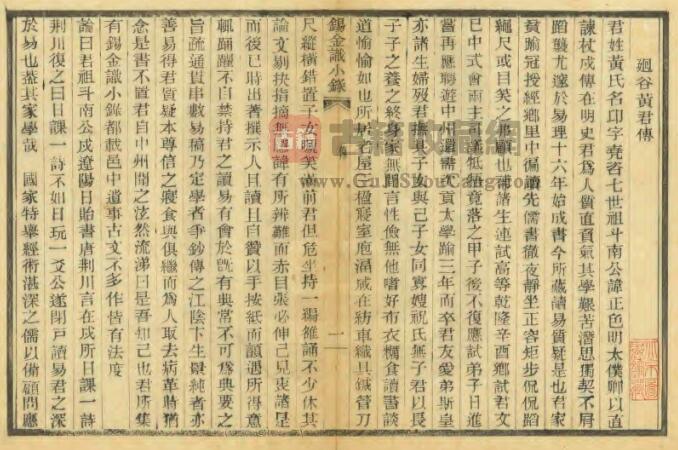 迴谷黃君傳
君姓黃氏名卬字堯咨七世祖斗南公諱正色明太僕卿以直
諫杖戍傳在明史君爲人質直負氣其學艱苦濬思獨契不屑
蹈襲尤邃於易理十六年始成書今所藏讀易質疑是也君家
貧踰冠授經鄉里中徧讀先儒書徹夜靜坐正容矩步侃侃蹈
繩尺或目笑之弗顧也補諸生連試高等乾隆辛酉鄉試君文
已中式會雨主司牴牾竟落之甲子後不復應試弟子日進
嘗再應聘遊中州還需次貢太學踰三年而卒君友愛弟斯皇
亦諸生婦歿君撫其子女與己子女同寡嫂祝氏無子君以長
子子之養之終身家無閒言性儉無他嗜好布衣糲食讀書談
道愉愉如也所居老屋三楹寢室庖湢咸在紡車織具鍼管刀
錫金識小錄
一
尺縱橫錯置子女嗁笑滿前君但危坐持一編雒誦不少休其
論文剔抉指摘無忌諱有所辨難面赤目張必伸己見衷諸是
而後已時出著撰示人且讀且自贊以手按紙而顫遇所得意
輒踊躍不自禁持君之讀易有會於旣有典常不可爲典要之
旨疏通貫串數易稿乃定學者爭鈔傳之江陰卞生景純者亦
善易得君質疑本尊信之寢食與俱繼而爲人取去病革時猶
念是書不置君自中州聞之泫然流涕曰是吾知己也君所集
有錫金識小錄都載邑中遺事古文不多作皆有法度
論曰君祖斗南公戍遼陽日貽書唐荊川言在戍所日課一詩
荊川復之曰日課一詩不如日玩一爻公遂閉戶讀易君之深
於易也蓋其家學哉　國家特舉經術湛深之儒以備顧問應